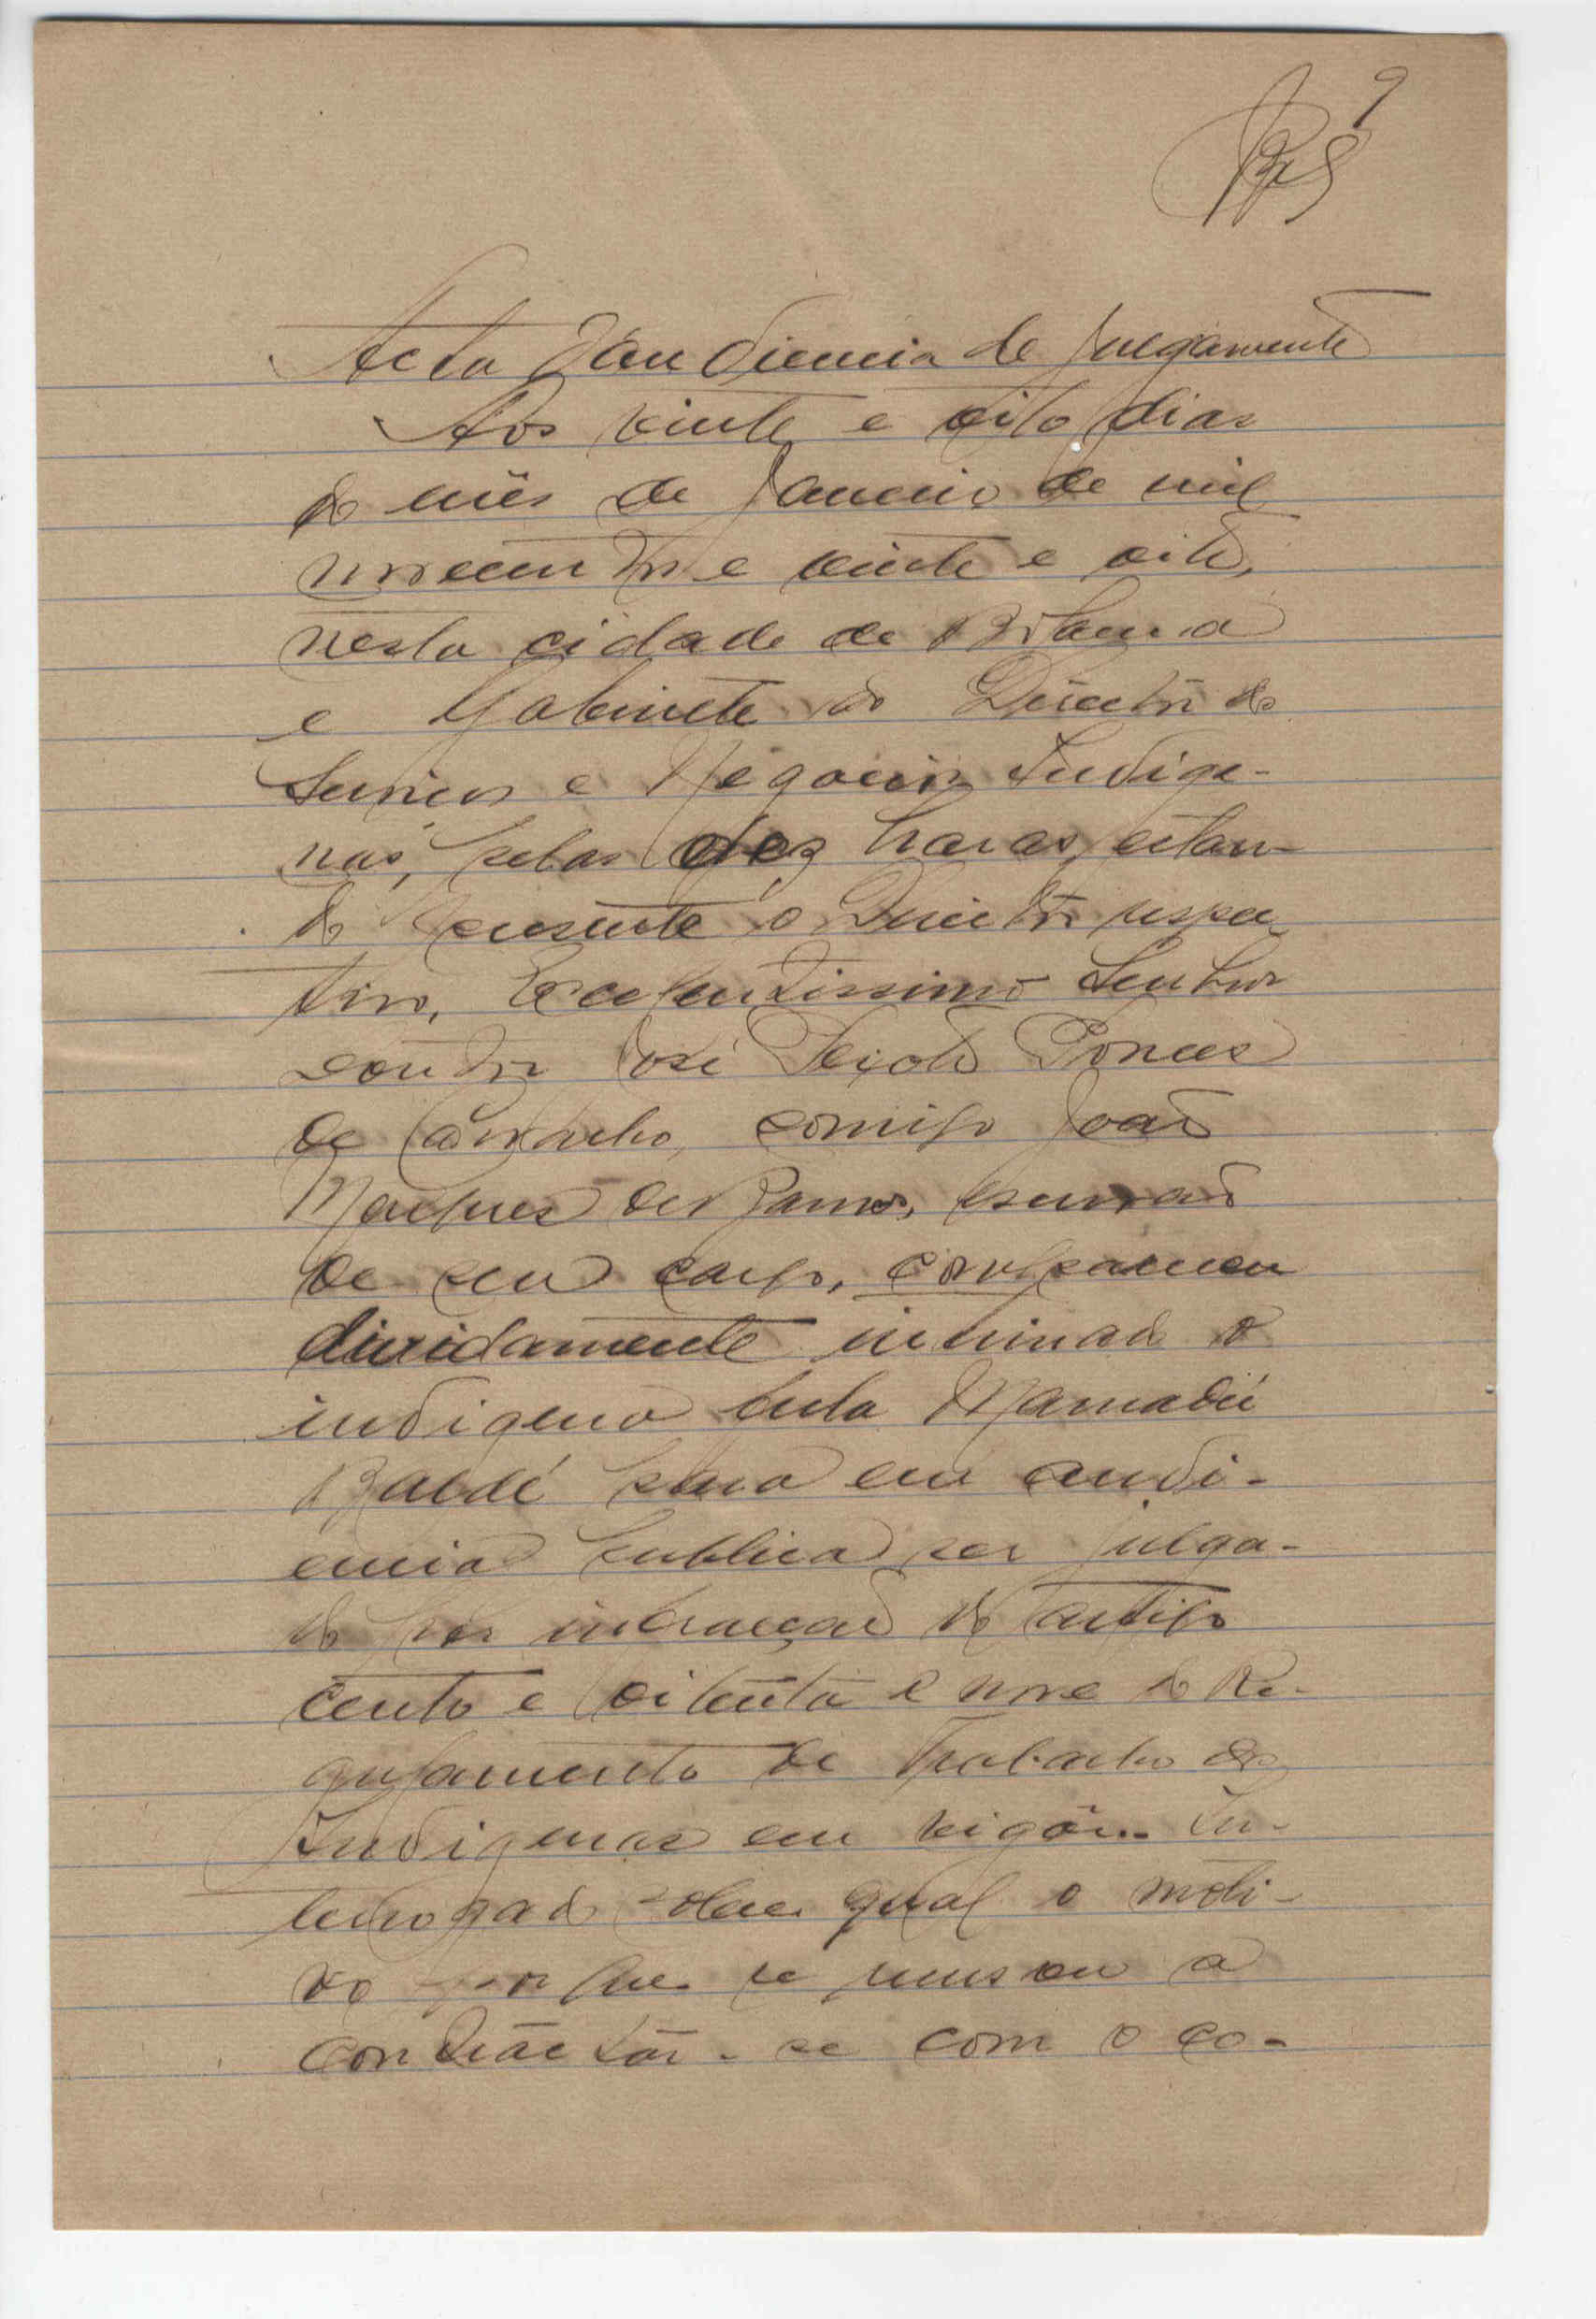 9
Acta d'audiencia de julgamento
Aos vinte e oito dias
do mês de Janeiro de mil
novecentos e vinte e oito,
nesta cidade de Bolama
e Gabinete do Director dos
Serviços e Negocios Indige-
nas, pelas dez horas, estan-
do presente o Director respe-
tivo, Excelentissimo Senhor
doutor José Peixoto Ponces
de Carvalho, comigo João
Marques de Ramos, escrivão
de seu cargo, compareceu
dividamente intimado o
indigena fula Mamadú
Baldé para em audi-
encia publica ser julga-
do por infracção do artigo
cento e oitenta e nove do Re-
gulamento de Trabalho dos
Indigenas em vigôr. In-
terrogado sobre qual o moti-
vo porque se recusou a
contractar-se com o co-